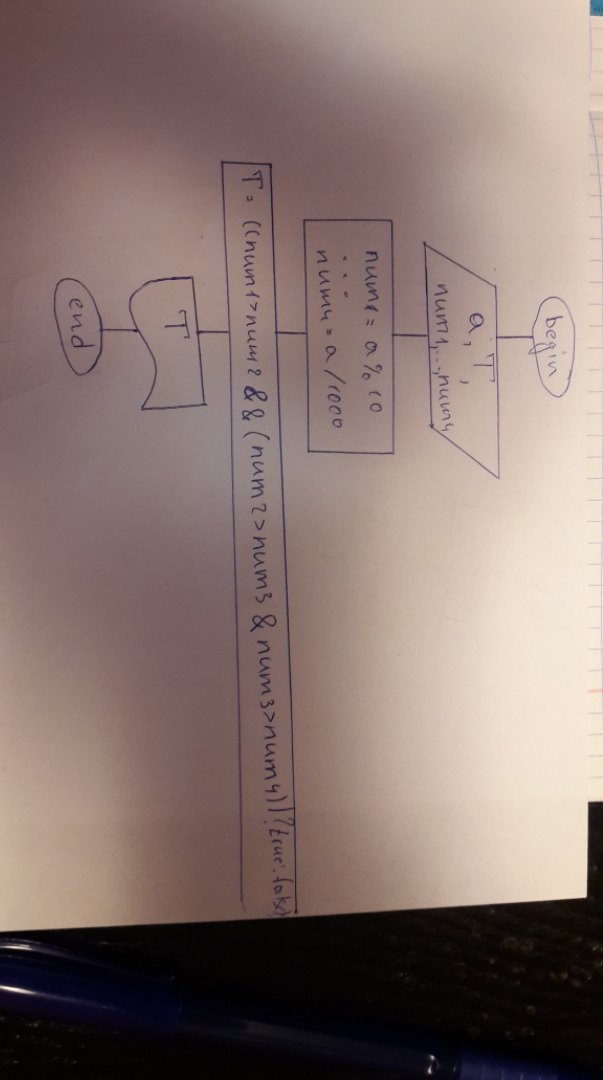 begin
a, T,
num1,..,num4
num1 = a % 10
...
num4 = a / 1000
T = ((num1>num2 && (num2>num3 & num3>num4))?true:false)
T
end